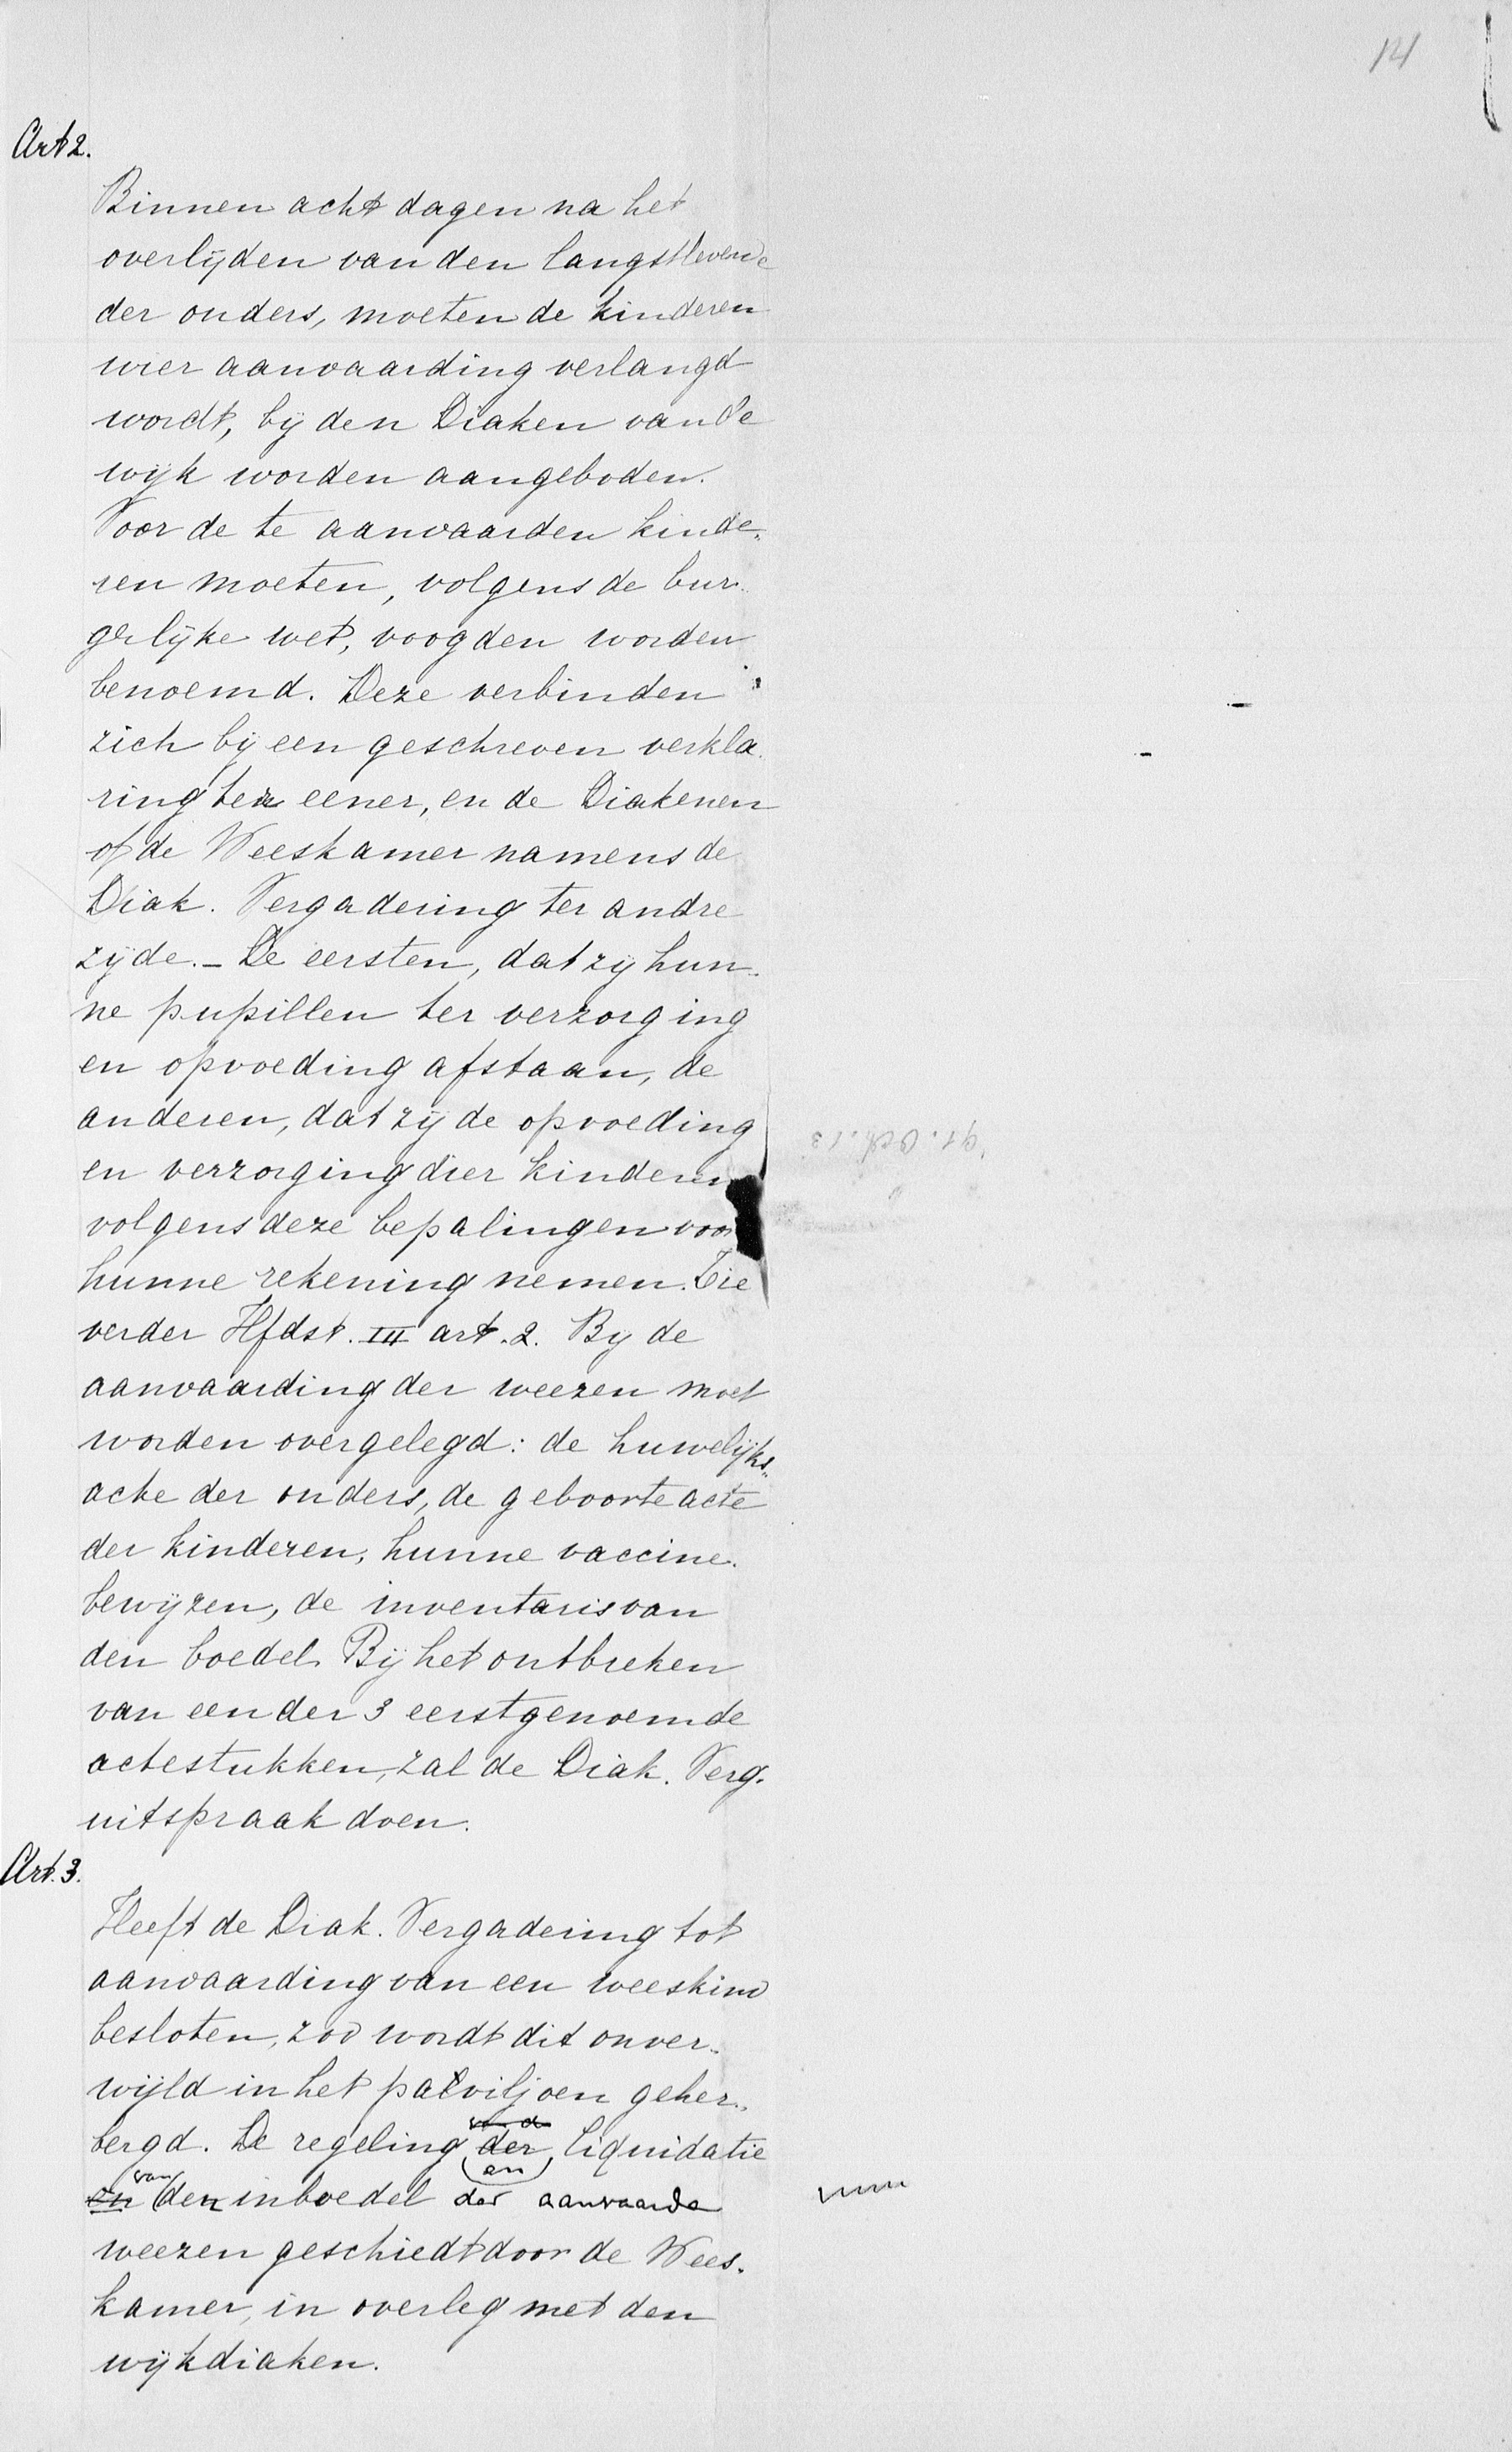 14
Art 2.
Binnen acht dagen na het
overlijden van den langstlevende
der ouders, moeten de kinderen
wier aanvaarding verlangd
wordt, bij den Diaken van de
wijk worden aangeboden.
Voor de te aanvaarden kinde-
ren moeten, volgens de bur-
gerlijke wet, voogden worden
benoemd. Deze verbinden
zich bij een geschreven verkla-
ring ter eener, en de Diakenen
of de Weeskamer namens de
Diak. Vergadering ter andre
zijde. - De eersten, dat zij hun-
ne pupillen ter verzorging
en opvoeding afstaan, de
anderen, dat zij de opvoeding
en verzorging dier kinderen
volgens deze bepalingen voor
hunne rekening nemen. Zie
verder Hfdst. III art. 2. Bij de
aanvaarding der weezen moet
worden overgelegd: de huwelijks-
acte der ouders, de geboorteacte
der kinderen, hunne vaccine-
bewijzen, de inventaris van
den boedel. Bij het ontbreken
van een der 3 eerstgenoemde
actestukken, zal de Diak. Verg.
uitspraak doen.
Art. 3.
Heeft de Diak. Vergadering tot
aanvaarding van een weeskind
besloten, zoo wordt dit onver-
wijld in het paviljoen geher-
bergd. De regeling der (en) liquidatie
en van den inboedel der aanvaarde
weezen geschiedt door de Wees-
kamer, in overleg met den
wijkdiaken.